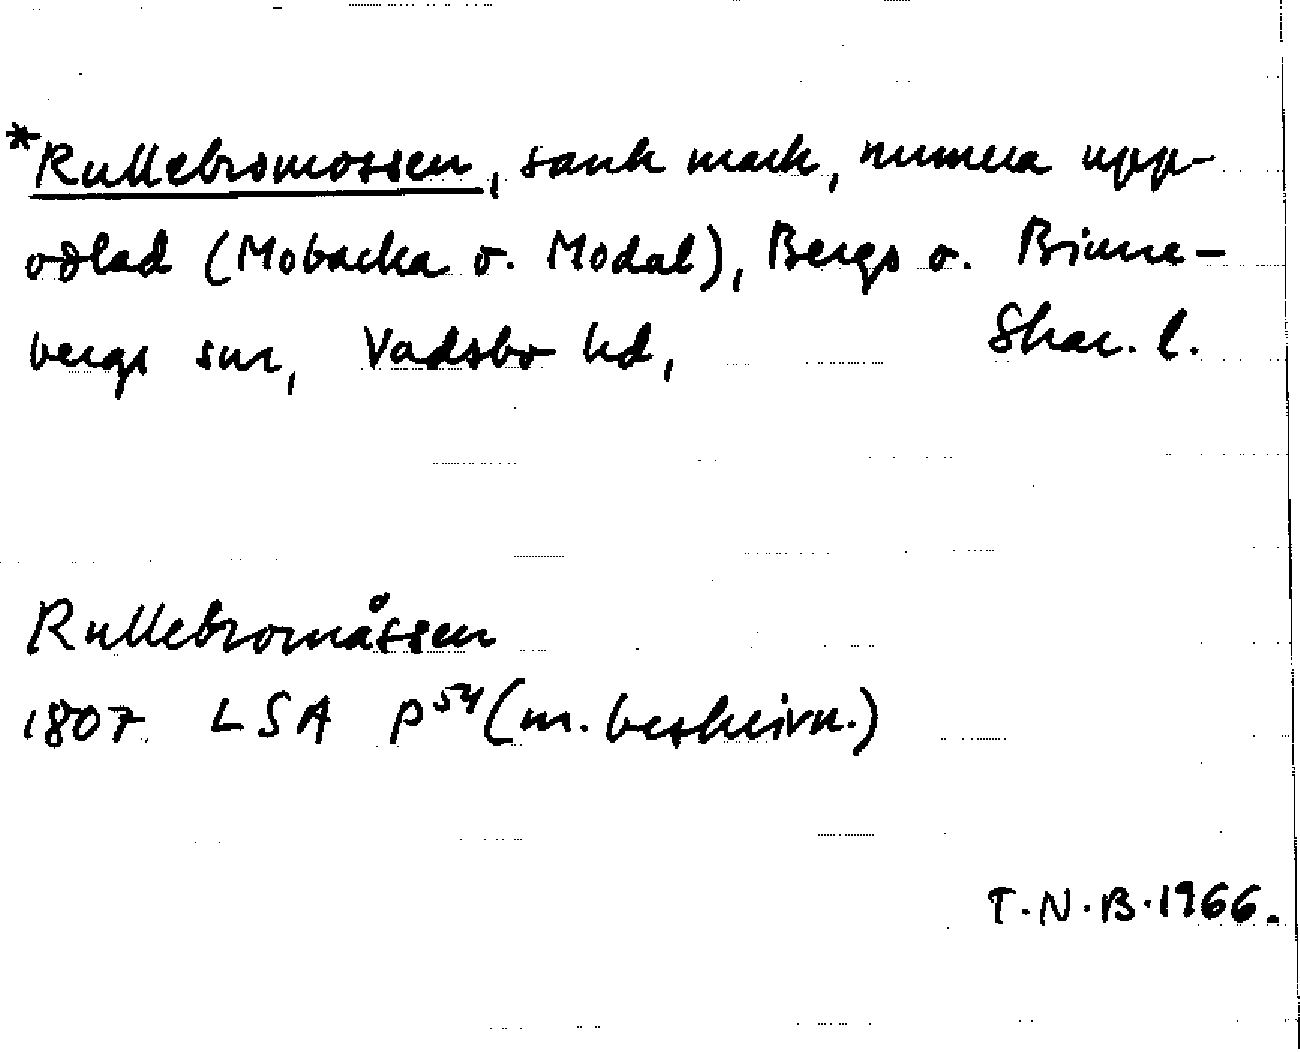 *Rullebromossen, sank mark, numera upp-
odlad (Mobacka o. Modal), Bergs o. Binne-
bergs snr, Vadsbo hd, Skar. l.
Rullebromåssen
1807 LSA P54 (m. beskrivn.)
T.N.B. 1966.